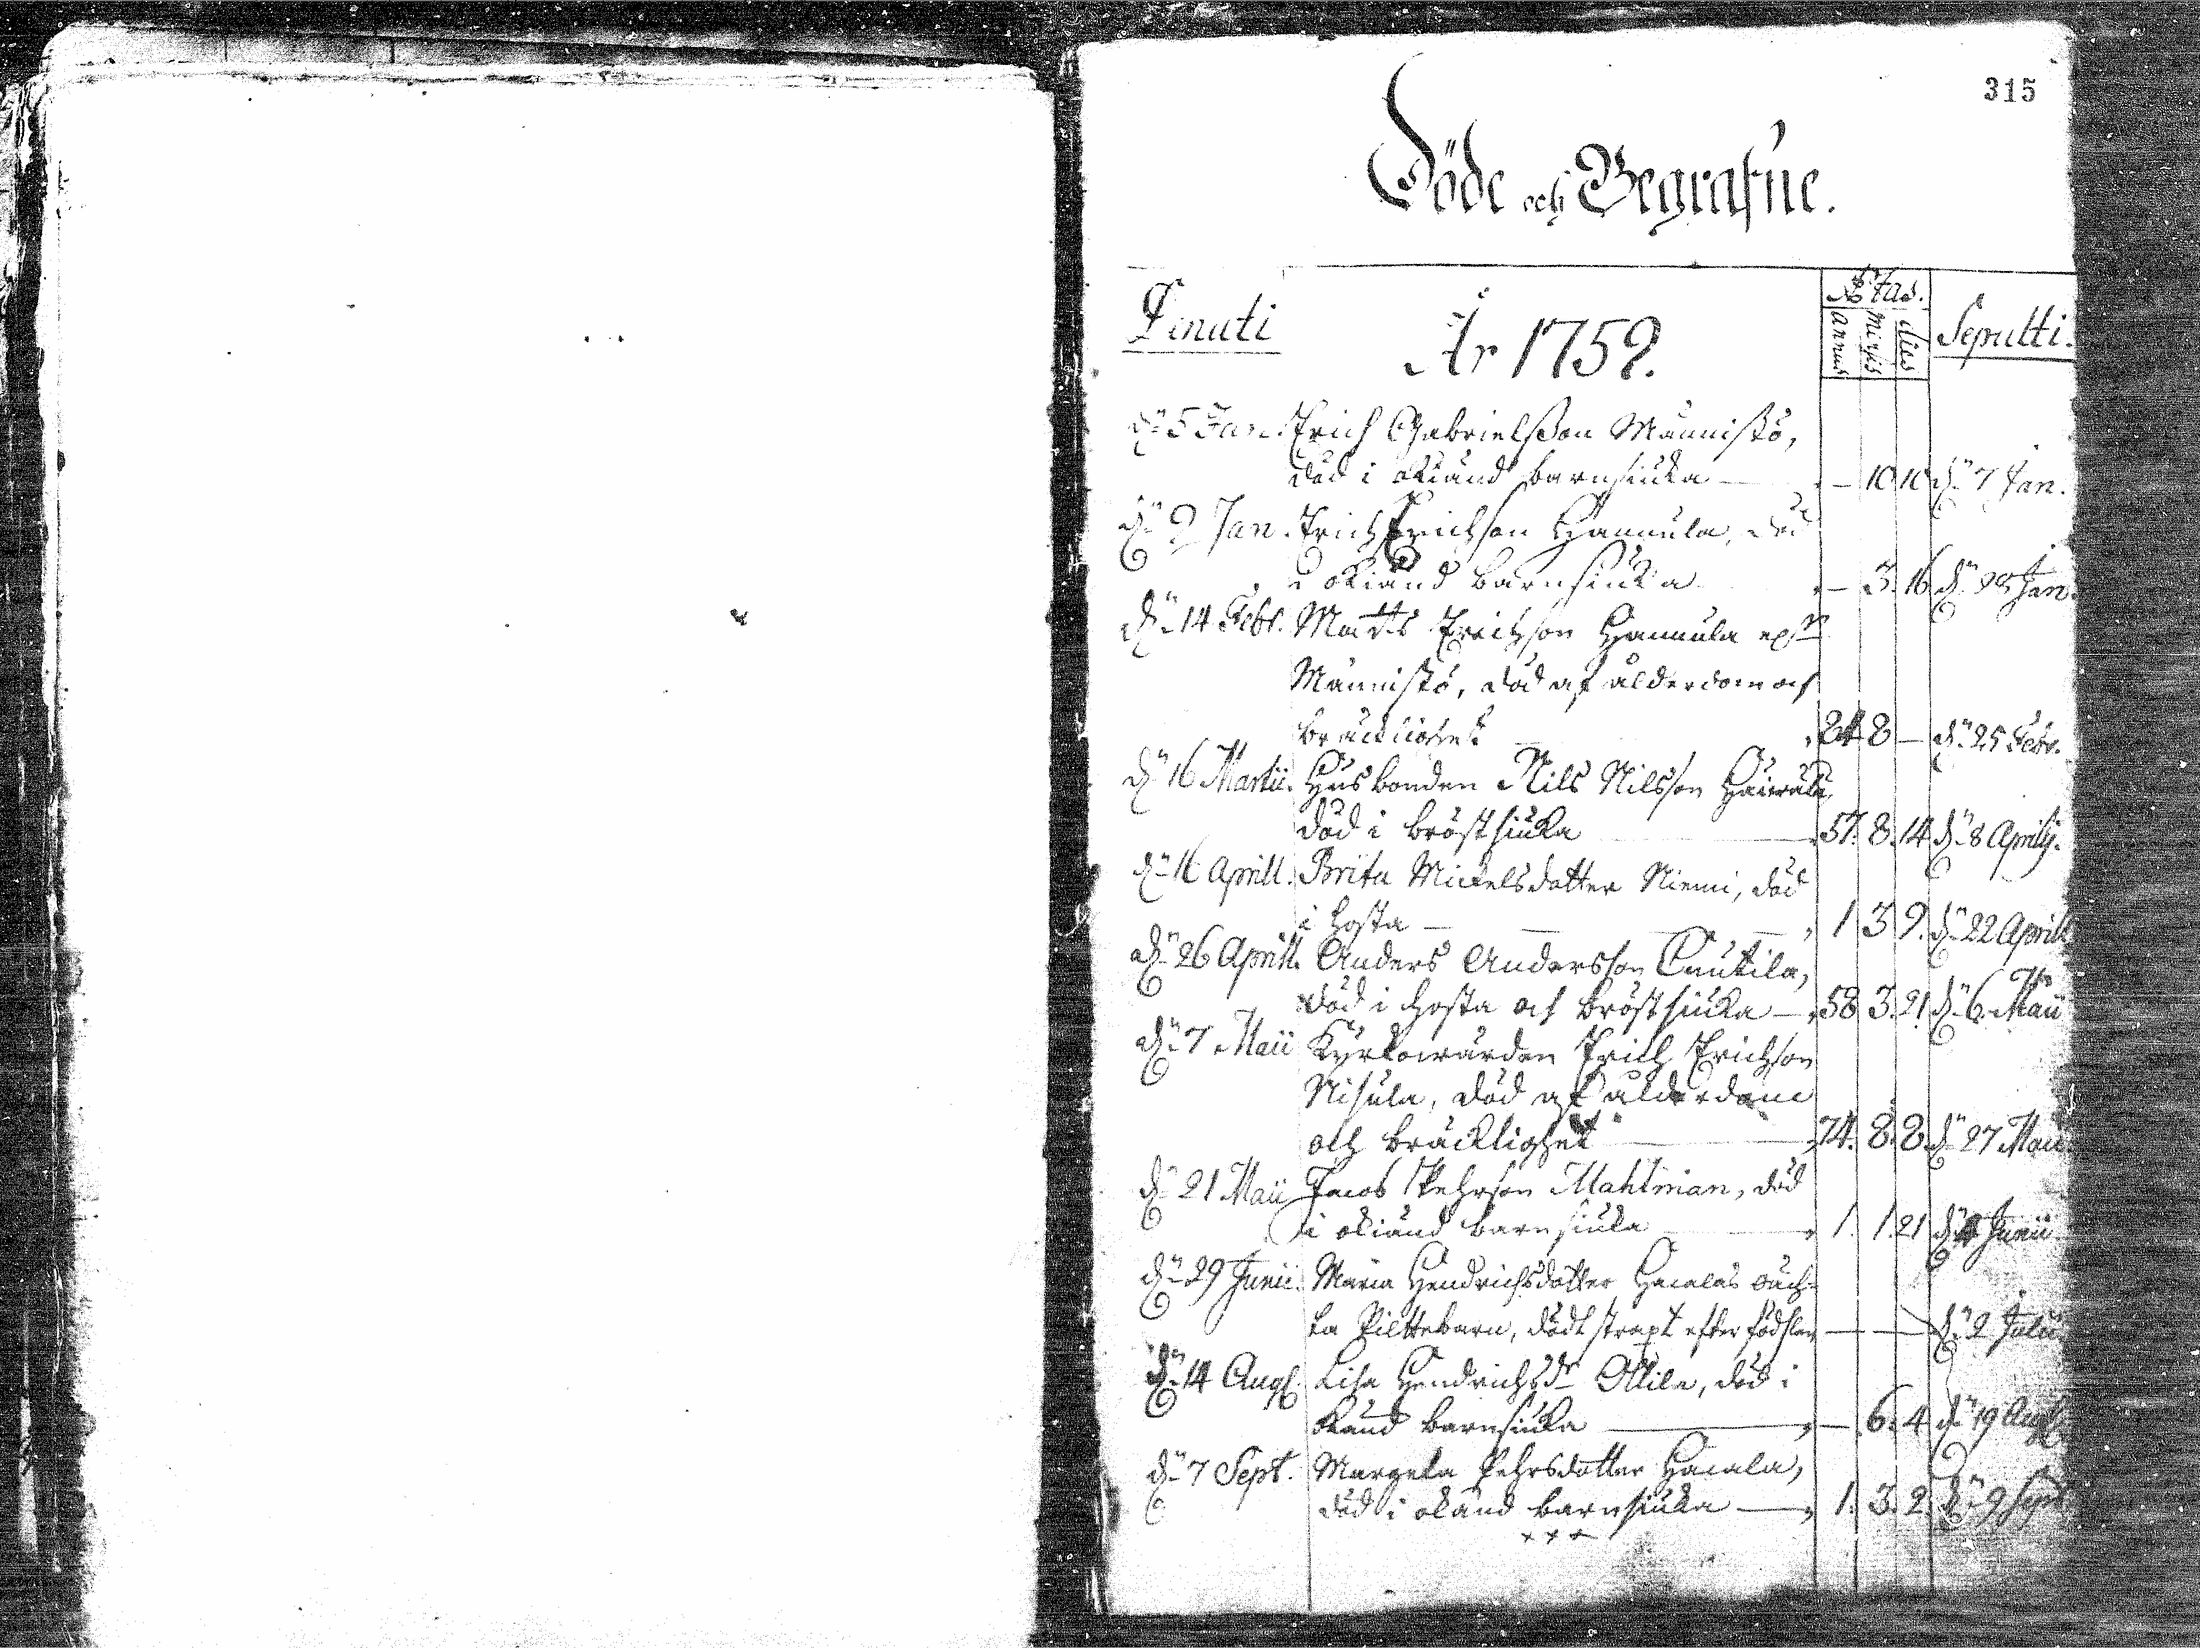 315
Döde och Begrafne.
Denati
År 1759.
Ætas.
annus mensis dies
Sepulti.
dn 5 Jan. Erich Gabrielsson Männistö,
död i okiänd barnsiuka — — 10 10 dn 7 Jan.
dn 9 Jan. Erich Erichson Hannula, död
i okiänd barnsiuka — 3. 16 dn 28 Jan.
dn 14 Febr. Matts Erichson Hannula
Männistö, död af ålderdom och
bräcklighet 84 8 — dn 25 Febr.
dn 16 Martii. Husbonden Nils Nilsson
död i bröstsiuka 57. 8. 14 dn 8 Aprilis.
dn 16 Aprill. Brita Mickelsdotter Niemi, död
i hosta — 1 3 9. dn 22 Aprill
dn 26 Aprill. Anders Andersson
död i hosta och bröstsiuka — 58 3. 21 dn 6 Maii
dn 7 Maii Kyrkowärden Erich Erichson
Nisula, död af ålderdom
och bräcklighet 74. 8. 8. dn 27 Maii
dn 21 Maii Jacob Pehrson Mahlman, död
i okiänd barnsiuka 1. 1. 21 dn Junii
dn 29 Junii. Maria Hendrichsdotter Hacalas oäch-
ta Piltebarn, dödt straxt efter födslen — — dn 2 Julii
dn 14 Aug. Lisa Hendrichsdr Ollila, död i
okänd barnsiuka — 6. 4 dn 19 Aug
dn 7 Sept. Margeta Pehrsdotter Hacala,
död i okänd barnsiuka — 1. 3. 2. dn 9 Sept